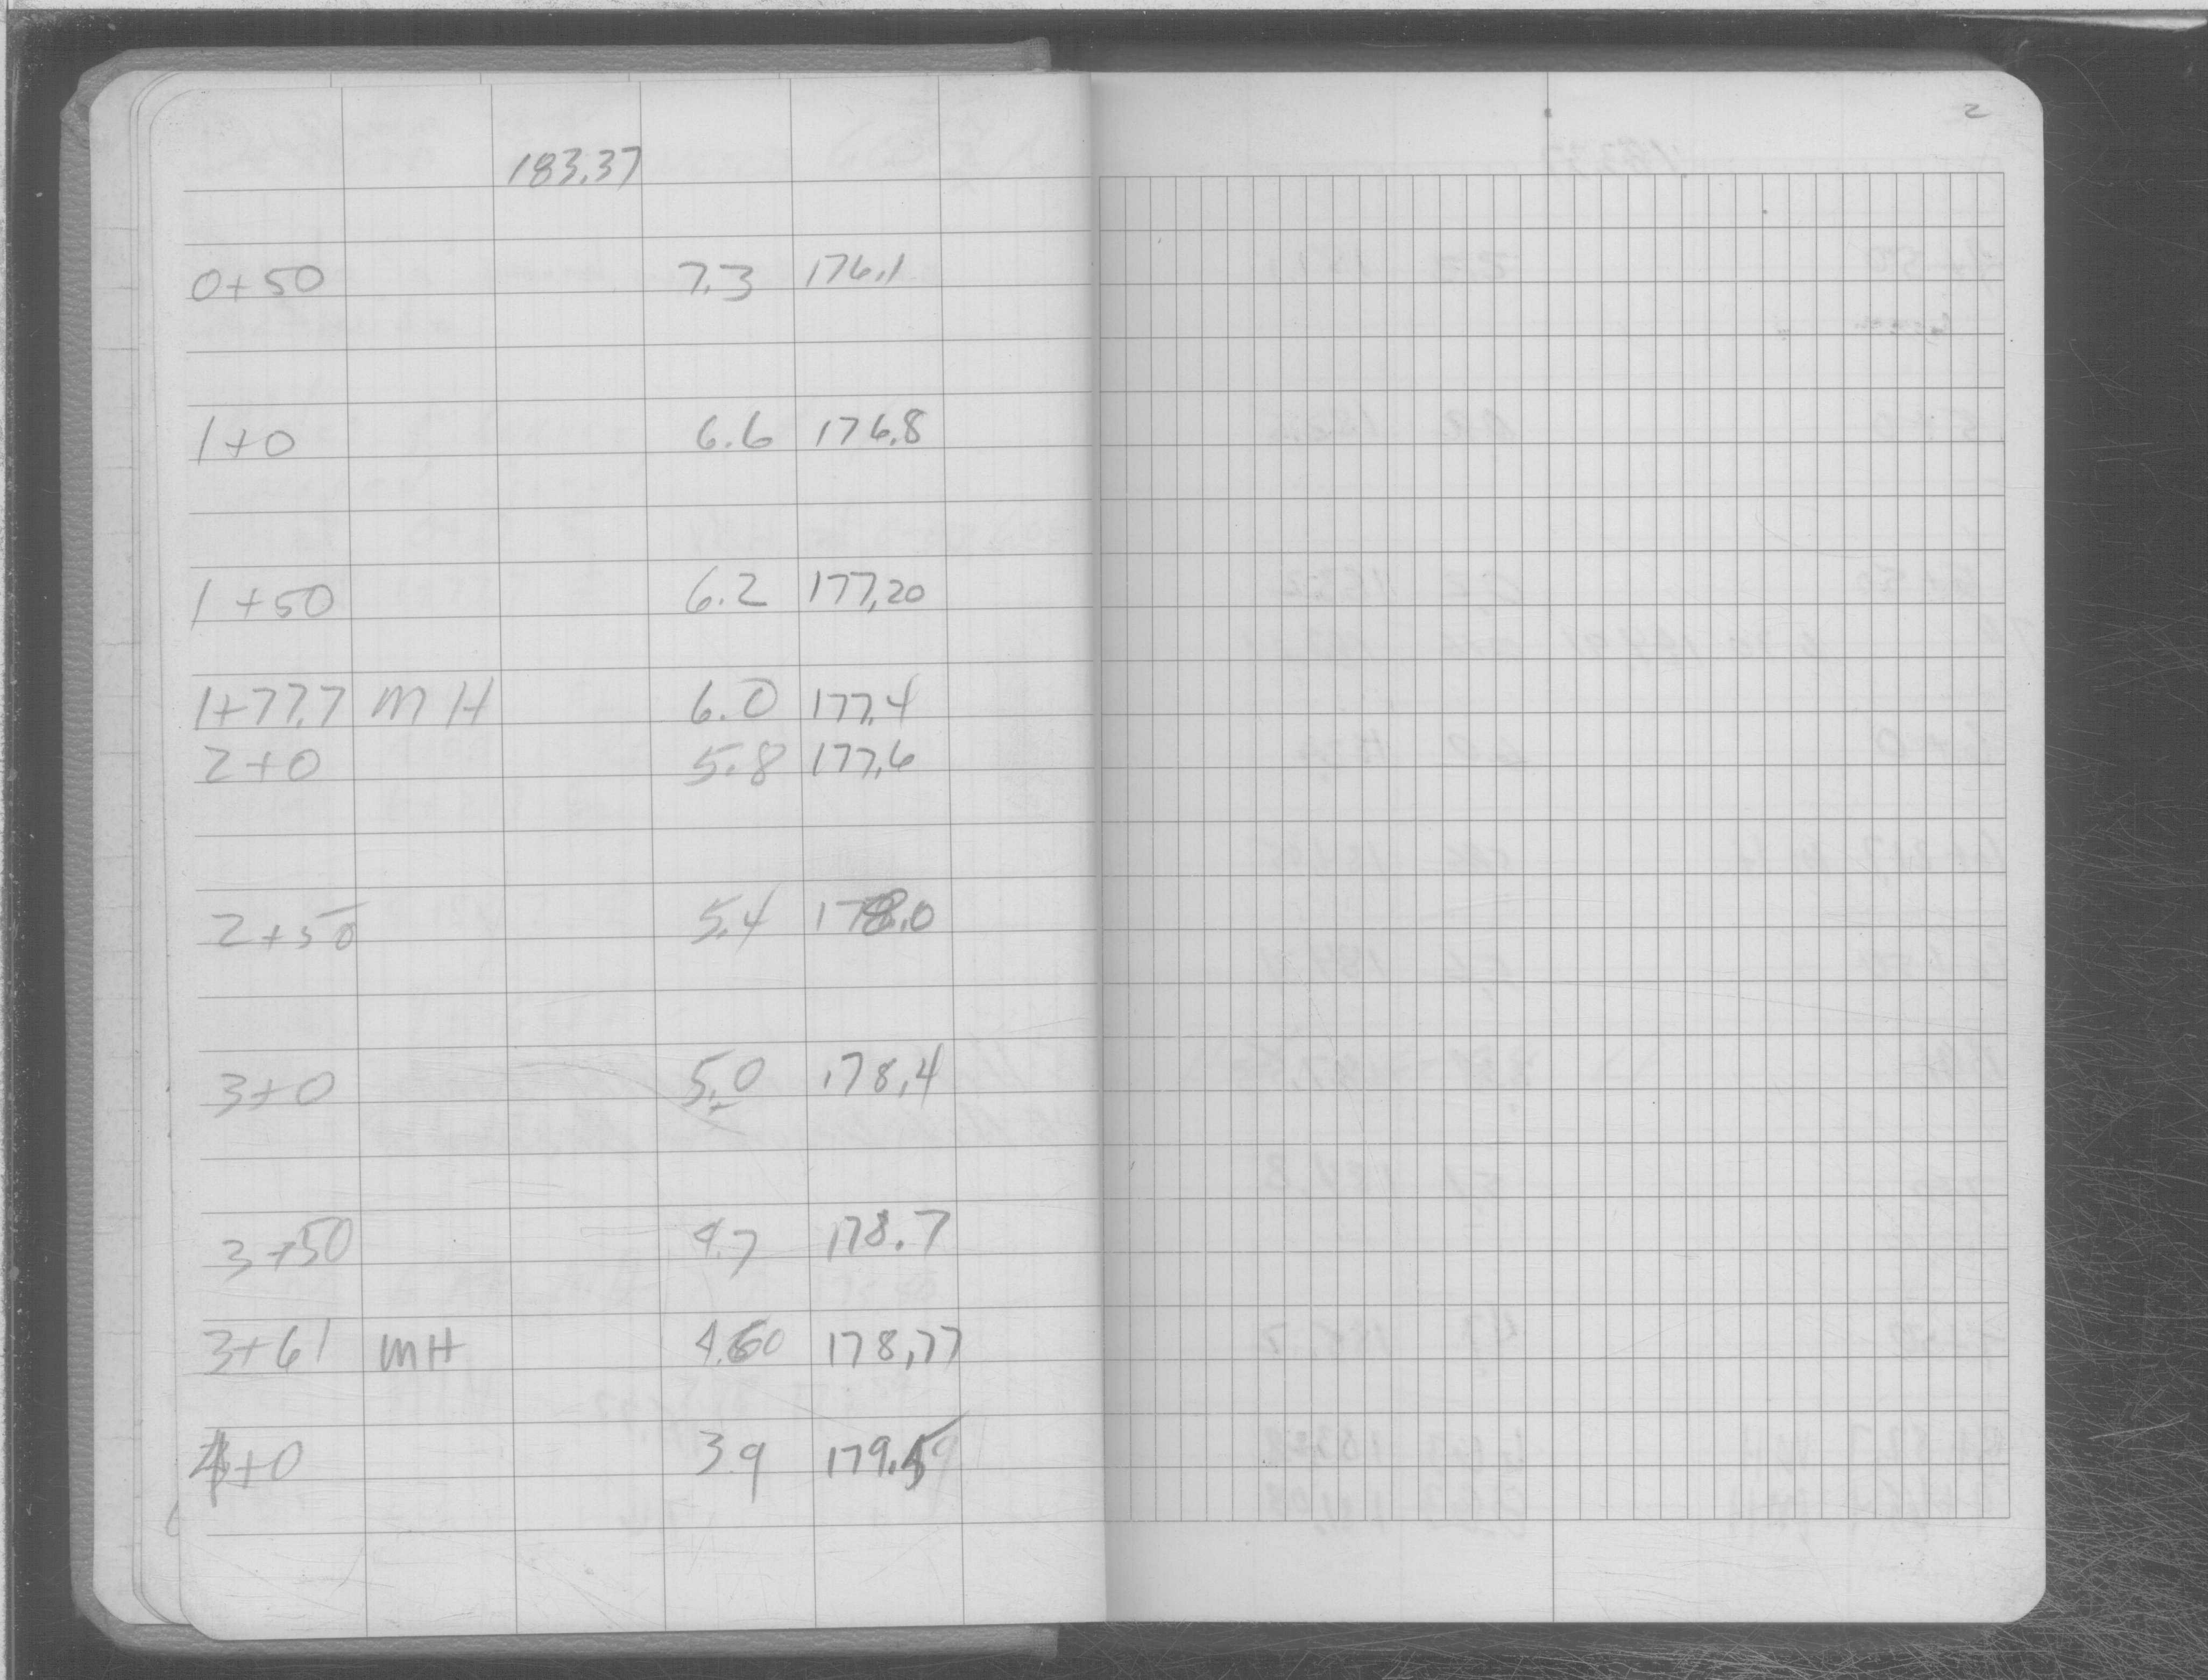 2
183.37
0+50 7.3 176.1
1+0 6.6 176.8
1+50 6.2 177.20
1+77.7 MH 6.0 177.4
2+0 5.8 177.6
2+50 5.4 178.0
3+0 5.0 178.4
3+50 4.7 178.7
3+61 MH 4.60 178.77
4+0 3.9 179.5